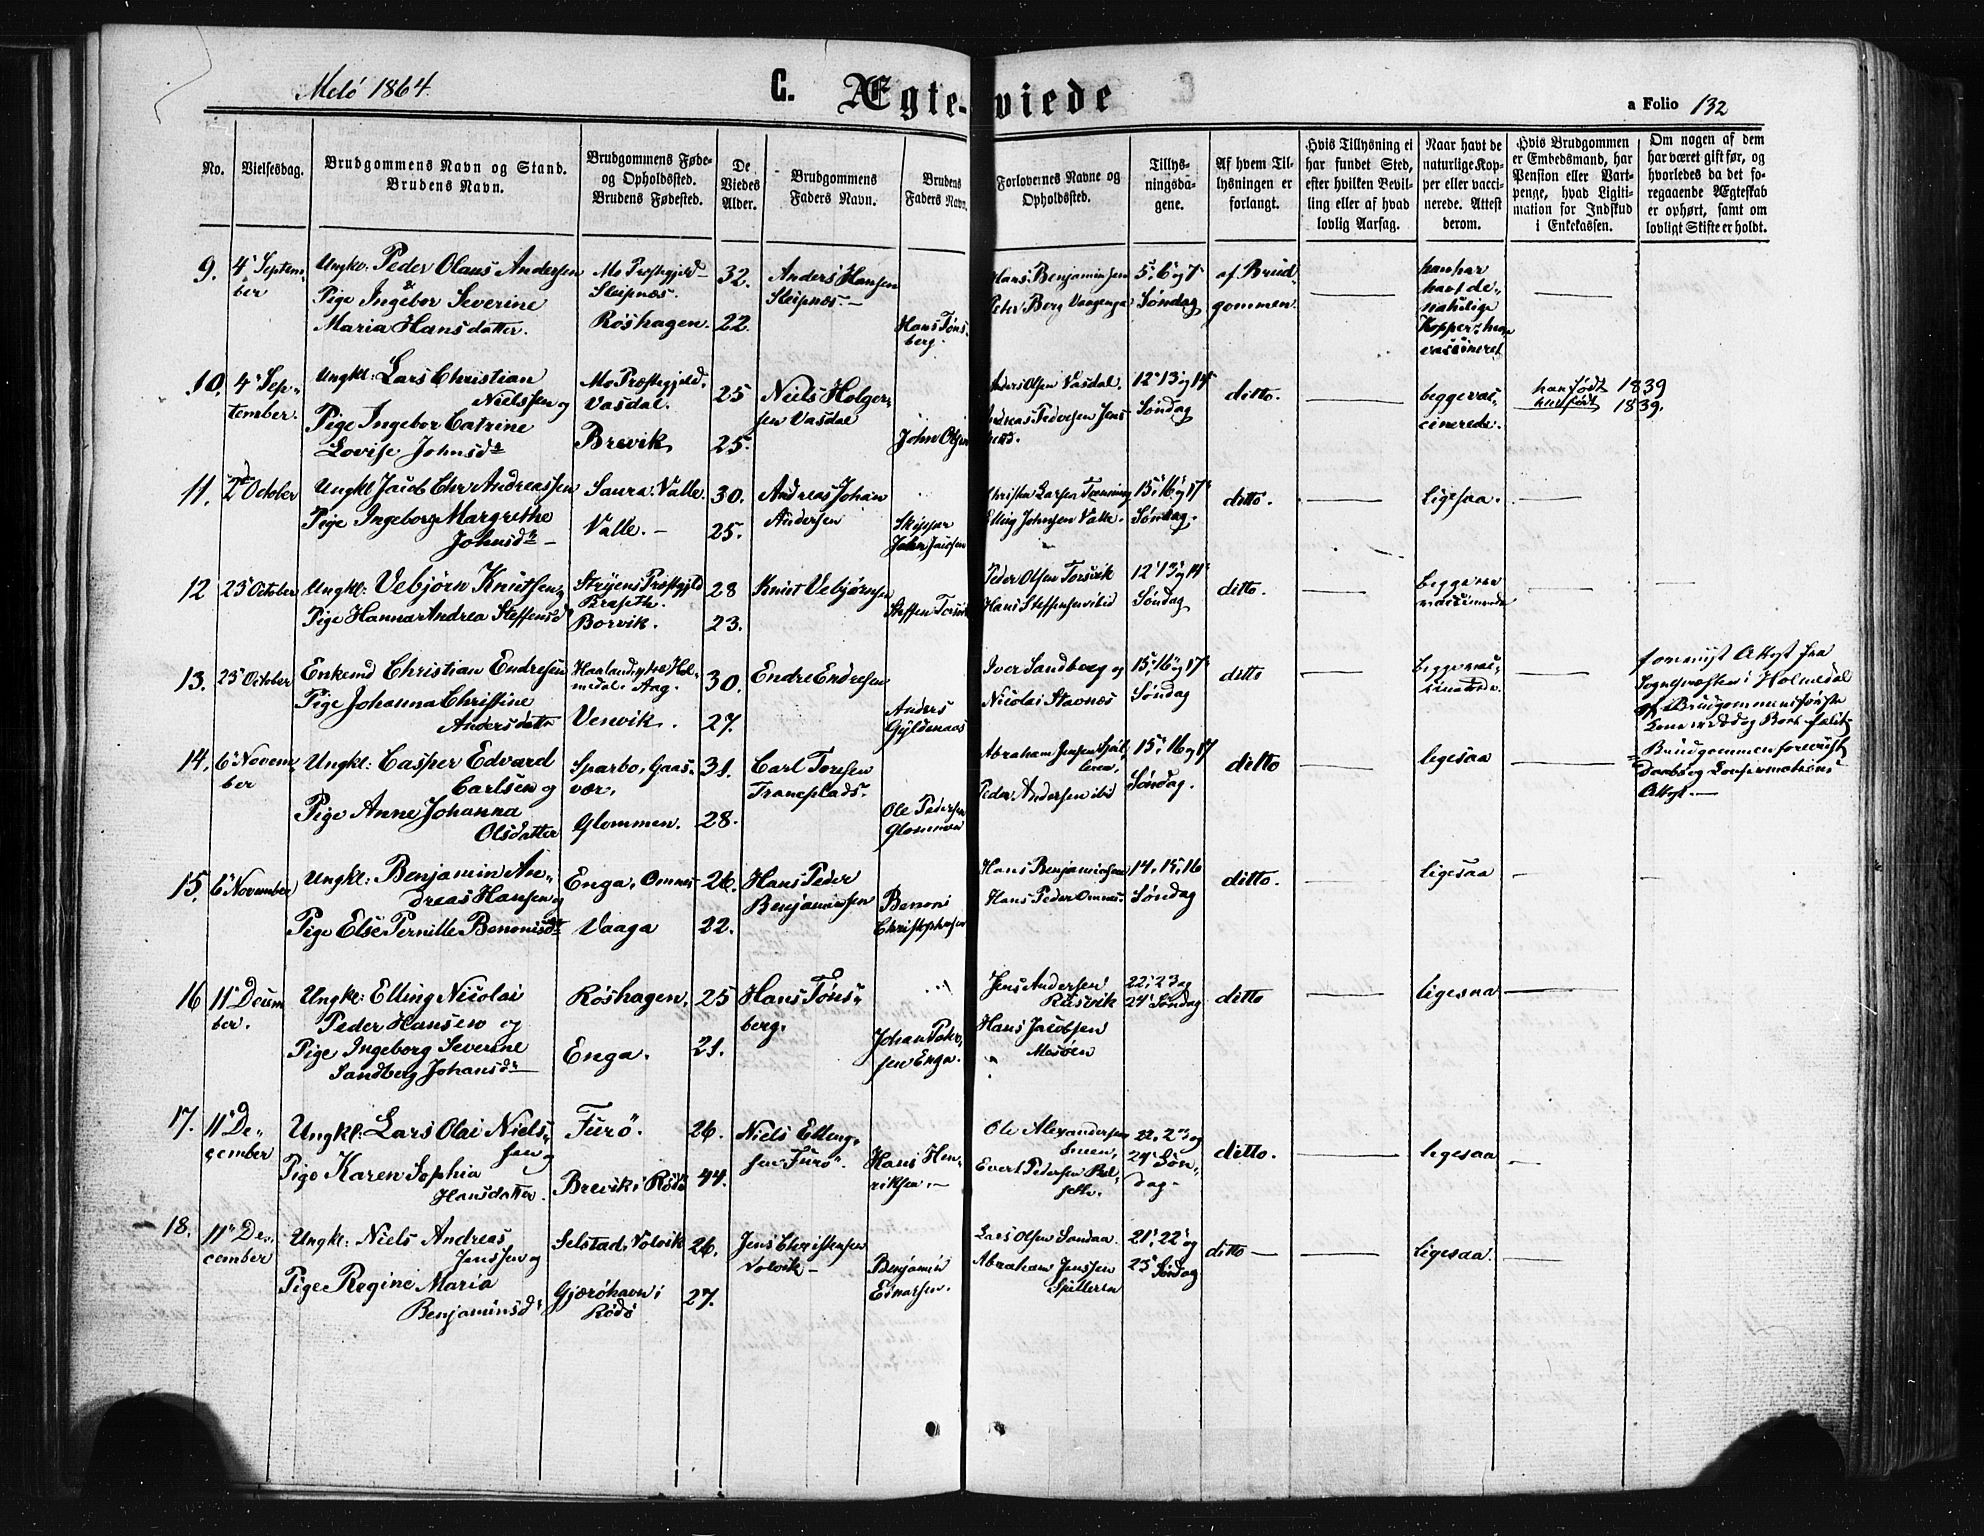 Melö 1864.
C. Ægte-viede
a Folio 132
No.
Vielsesdag.
Brudgommens Navn og Stand.
Brudens Navn.
Brudgommens Føde-
og Opholdssted.
Brudens Fødested.
De
Viedes
Alder.
Brudgommens
Faders Navn.
Brudens
Faders Navn.
Forlovernes Navne og
Opholdssted.
Tillys-
ningsda-
gene.
Af hvem Til-
lysningen er
forlangt.
Hvis Tillysning ei
har fundet Sted,
efter hvilken Bevil-
ling eller af hvad
lovlig Aarsag.
Naar havt de
naturlige Kop-
per eller vacci-
nerede. Attest
derom.
Hvis Brudgommen
er Embedsmand, har
Pension eller Vart-
penge, hvad Ligiti-
mation for Indskud
i Enkekassen.
Om nogen af dem
har været gift før, og
hvorledes da det fo-
regaaende Ægteskab
er ophørt, samt om
lovligt Skifte er holdt.
9. 4' Septem-
ber
Ungkl. Peder Olaus Andersen
&
Pige Ingebor Severine
Maria Hansdatter.
Mo Præstegjeld
Sleipnæs.
Röshagen.
32.
22.
Anders Hansen
Sleipnæs.
Hans Töns-
berg.
Hans Benjaminsen
Peter Berg Vaagenga
5', 6' og 7'
Söndag
af Brud-
gommen.
han har
havt de
naturlige
Kopper; hun
vaccineret
10. 4' Sep-
tember.
Ungkl: Lars Christian
Nielsen og
Pige Ingebor Catrine
Lovise Johnsd.
Mo Præstegjeld.
Vasdal.
Brevik
25
25.
Niels Holger-
sen Vasdal
John Olsen
Anders Olsen Vasdal.
Andreas Pedersen Jens
12' 13' og 14'
Söndag
ditto.
begge vac-
cinerede.
han født 1839
hun født 1839.
11. 2' October
Ungkl Jacob Chr Andreassen
Pige Ingeborg Margrethe
Johnsd.
Saura. Valle.
Valle.
30.
25.
Andreas Johan
Andersen
Skippar
John Jacobsen
Christen Larsen
Elling Johnsen Valle.
15', 16' og 17'
Söndag.
ditto.
ligesaa.
12 23' October
Ungkl: Vebjörn Knutsen
Pige Hanna Andrea Steffensd
Stryens Præstegjeld
Borvik.
28
23.
Knut Vebjörnsen
Steffen Torsvik
Peder Olsen Torsvik
Hans Steffensen ibid
12' 13' og 14'
Söndag
ditto.
begge ere
vaccinerede
13. 23' October
Enkemd Christian Endresen
Pige Johanna Christine
Andersdatter
Aag.
Venvik.
30.
27.
Endre Endresen
Anders
Gyldenaas
Iver Sandberg og
Nicolai Stavnæs
15', 16' og 17'
Söndag
ditto
begge vac-
cinerede.
forevist Attest fra
Sognepræsten i Holmedal
14. 6' Novem-
ber
Ungkl: Casper Edvard
Carlsen og
Pige Anne Johanna
Olsdatter
Sparbo, Gaas-
vær.
Glommen.
31.
28.
Carl Toresen
Traneplads.
Ole Pedersen
Glommen
Abraham Jensen
Peder Andersen ibid
15', 16 og 17
Söndag.
ditto
ligesaa
Brudgommen forevist
Daabs og Confirmations
Attest.
15. 6' November
Ungkl: Benjamin An-
dreas Hansen og
Pige Else Pernille Benonisdt
Enga, Omnes
Vaaga
26.
22.
Hans Peder
Benjaminsen
Benoni
Christophersen
Hans Benjaminsen
Hans Peder Omnes
14, 15, 16
Söndag
ditto.
ligesaa
16 11' Decem
ber.
Ungkl: Elling Nicolai
Peder Hansen og
Pige Ingeborg Severine
Sandberg Johansd.
Röshagen.
Enga.
25
21.
Hans Töns-
berg.
Johan Peter-
sen Enga.
Jens Andersen
Hans Jacobsen
Mesöen
22', 23' og
24' Söndag
ditto
ligesaa
17. 11' De-
cember
Ungkl: Lars Olai Niels-
sen og
Pige Karen Sophia
Hansdatter.
Furö.
Brevik i Rödö
26.
44.
Niels Elling-
sen Furö.
Hans Hen-
riksen.
Ole Alexandersen
Evert Pedersen
22, 23' og
24' Sön-
dag.
ditto.
ligesaa
18. 11' De-
cember
Ungkl: Niels Andreas
Jenssen og
Pige Regine Maria
Benjaminsd.
Selstad, Volvik
Gjeröhavn i
Rödö
26.
27.
Jens Christensen
Volvik
Benjamin
Einarsen.
Lars Olsen Sandaa.
Abraham Jenssen
Spilleren
21', 22' og
23' Söndag
ditto
ligesaa